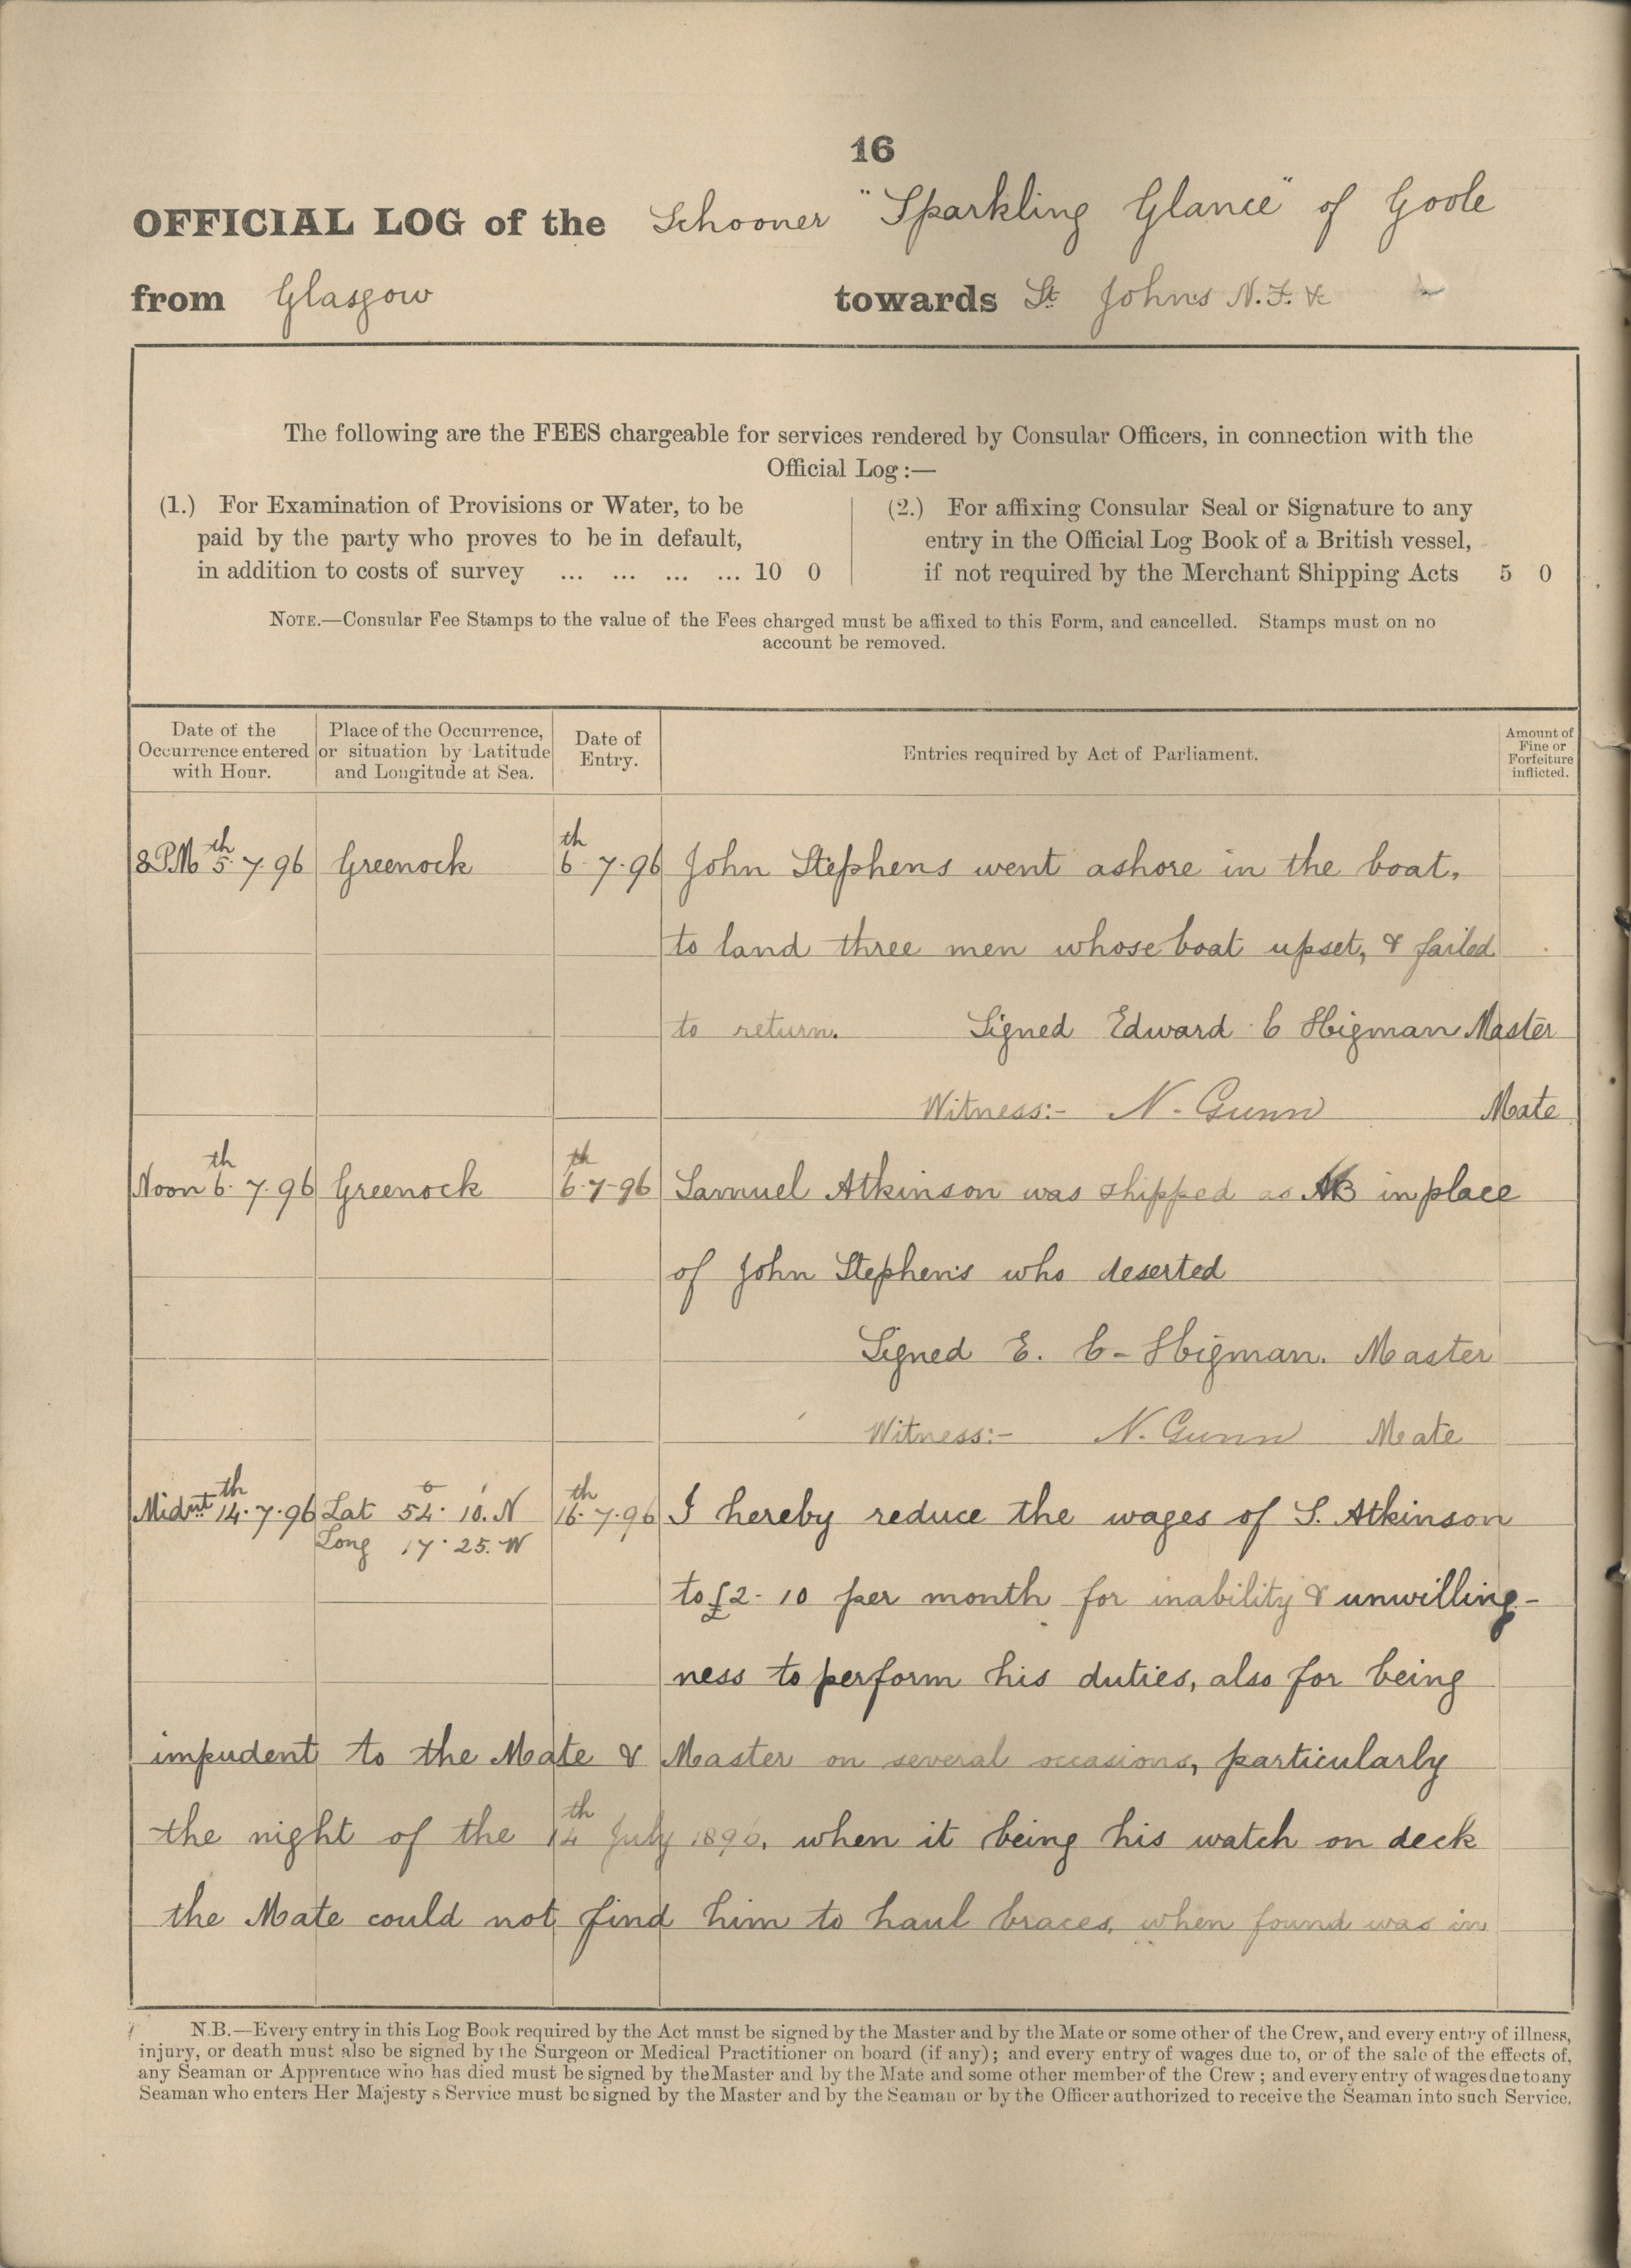 16
OFFICIAL LOG of the Schooner "Sparkling Glance" of Goole
from Glasgow towards St Johns N.F. &c
The following are the FEES chargeable for services rendered by Consular Officers, in connection with the
Official Log:—
(1.) For Examination of Provisions or Water, to be
paid by the party who proves to be in default,
in addition to costs of survey ... ... ... ... 10 0
(2.) For affixing Consular Seal or Signature to any
entry in the Official Log Book of a British vessel,
if not required by the Merchant Shipping Acts 5 0
NOTE.—Consular Fee Stamps to the value of the Fees charged must be affixed to this Form, and cancelled. Stamps must on no
account be removed.
Date of the
Occurrence entered
with Hour.
Place of the Occurrence,
or situation by Latitude
and Longitude at Sea.
Date of
Entry.
Entries required by Act of Parliament.
Amount of
Fine or
Forfeiture
inflicted.
8 P.M 5th. 7. 96 Greenock 6th. 7. 96 John Stephens went ashore in the boat,
to land three men whose boat upset, & failed
to return. Signed Edward C Higman Master
Witness:- N. Gunn Mate
Noon 6th. 7. 96 Greenock 6th. 7-96 Samuel Atkinson was shipped as AB in place
of John Stephens who deserted
Signed E. C- Higman. Master
Witness:- N. Gunn Mate
Midnt 14th. 7. 96 Lat 54° 10.' N 16th. 7. 96 I hereby reduce the wages of S. Atkinson
Long 17. 25. W
to £2-10 per month for inability & unwilling-
ness to perform his duties, also for being
impudent to the Mate & Master on several occasions, particularly
the night of the 14th July 1896, when it being his watch on deck
the Mate could not find him to haul braces, when found was in
N.B.—Every entry in this Log Book required by the Act must be signed by the Master and by the Mate or some other of the Crew, and every entry of illness,
injury, or death must also be signed by the Surgeon or Medical Practitioner on board (if any); and every entry of wages due to, or of the sale of the effects of,
any Seaman or Apprentice who has died must be signed by the Master and by the Mate and some other member of the Crew; and every entry of wages due to any
Seaman who enters Her Majesty s Service must be signed by the Master and by the Seaman or by the Officer authorized to receive the Seaman into such Service.